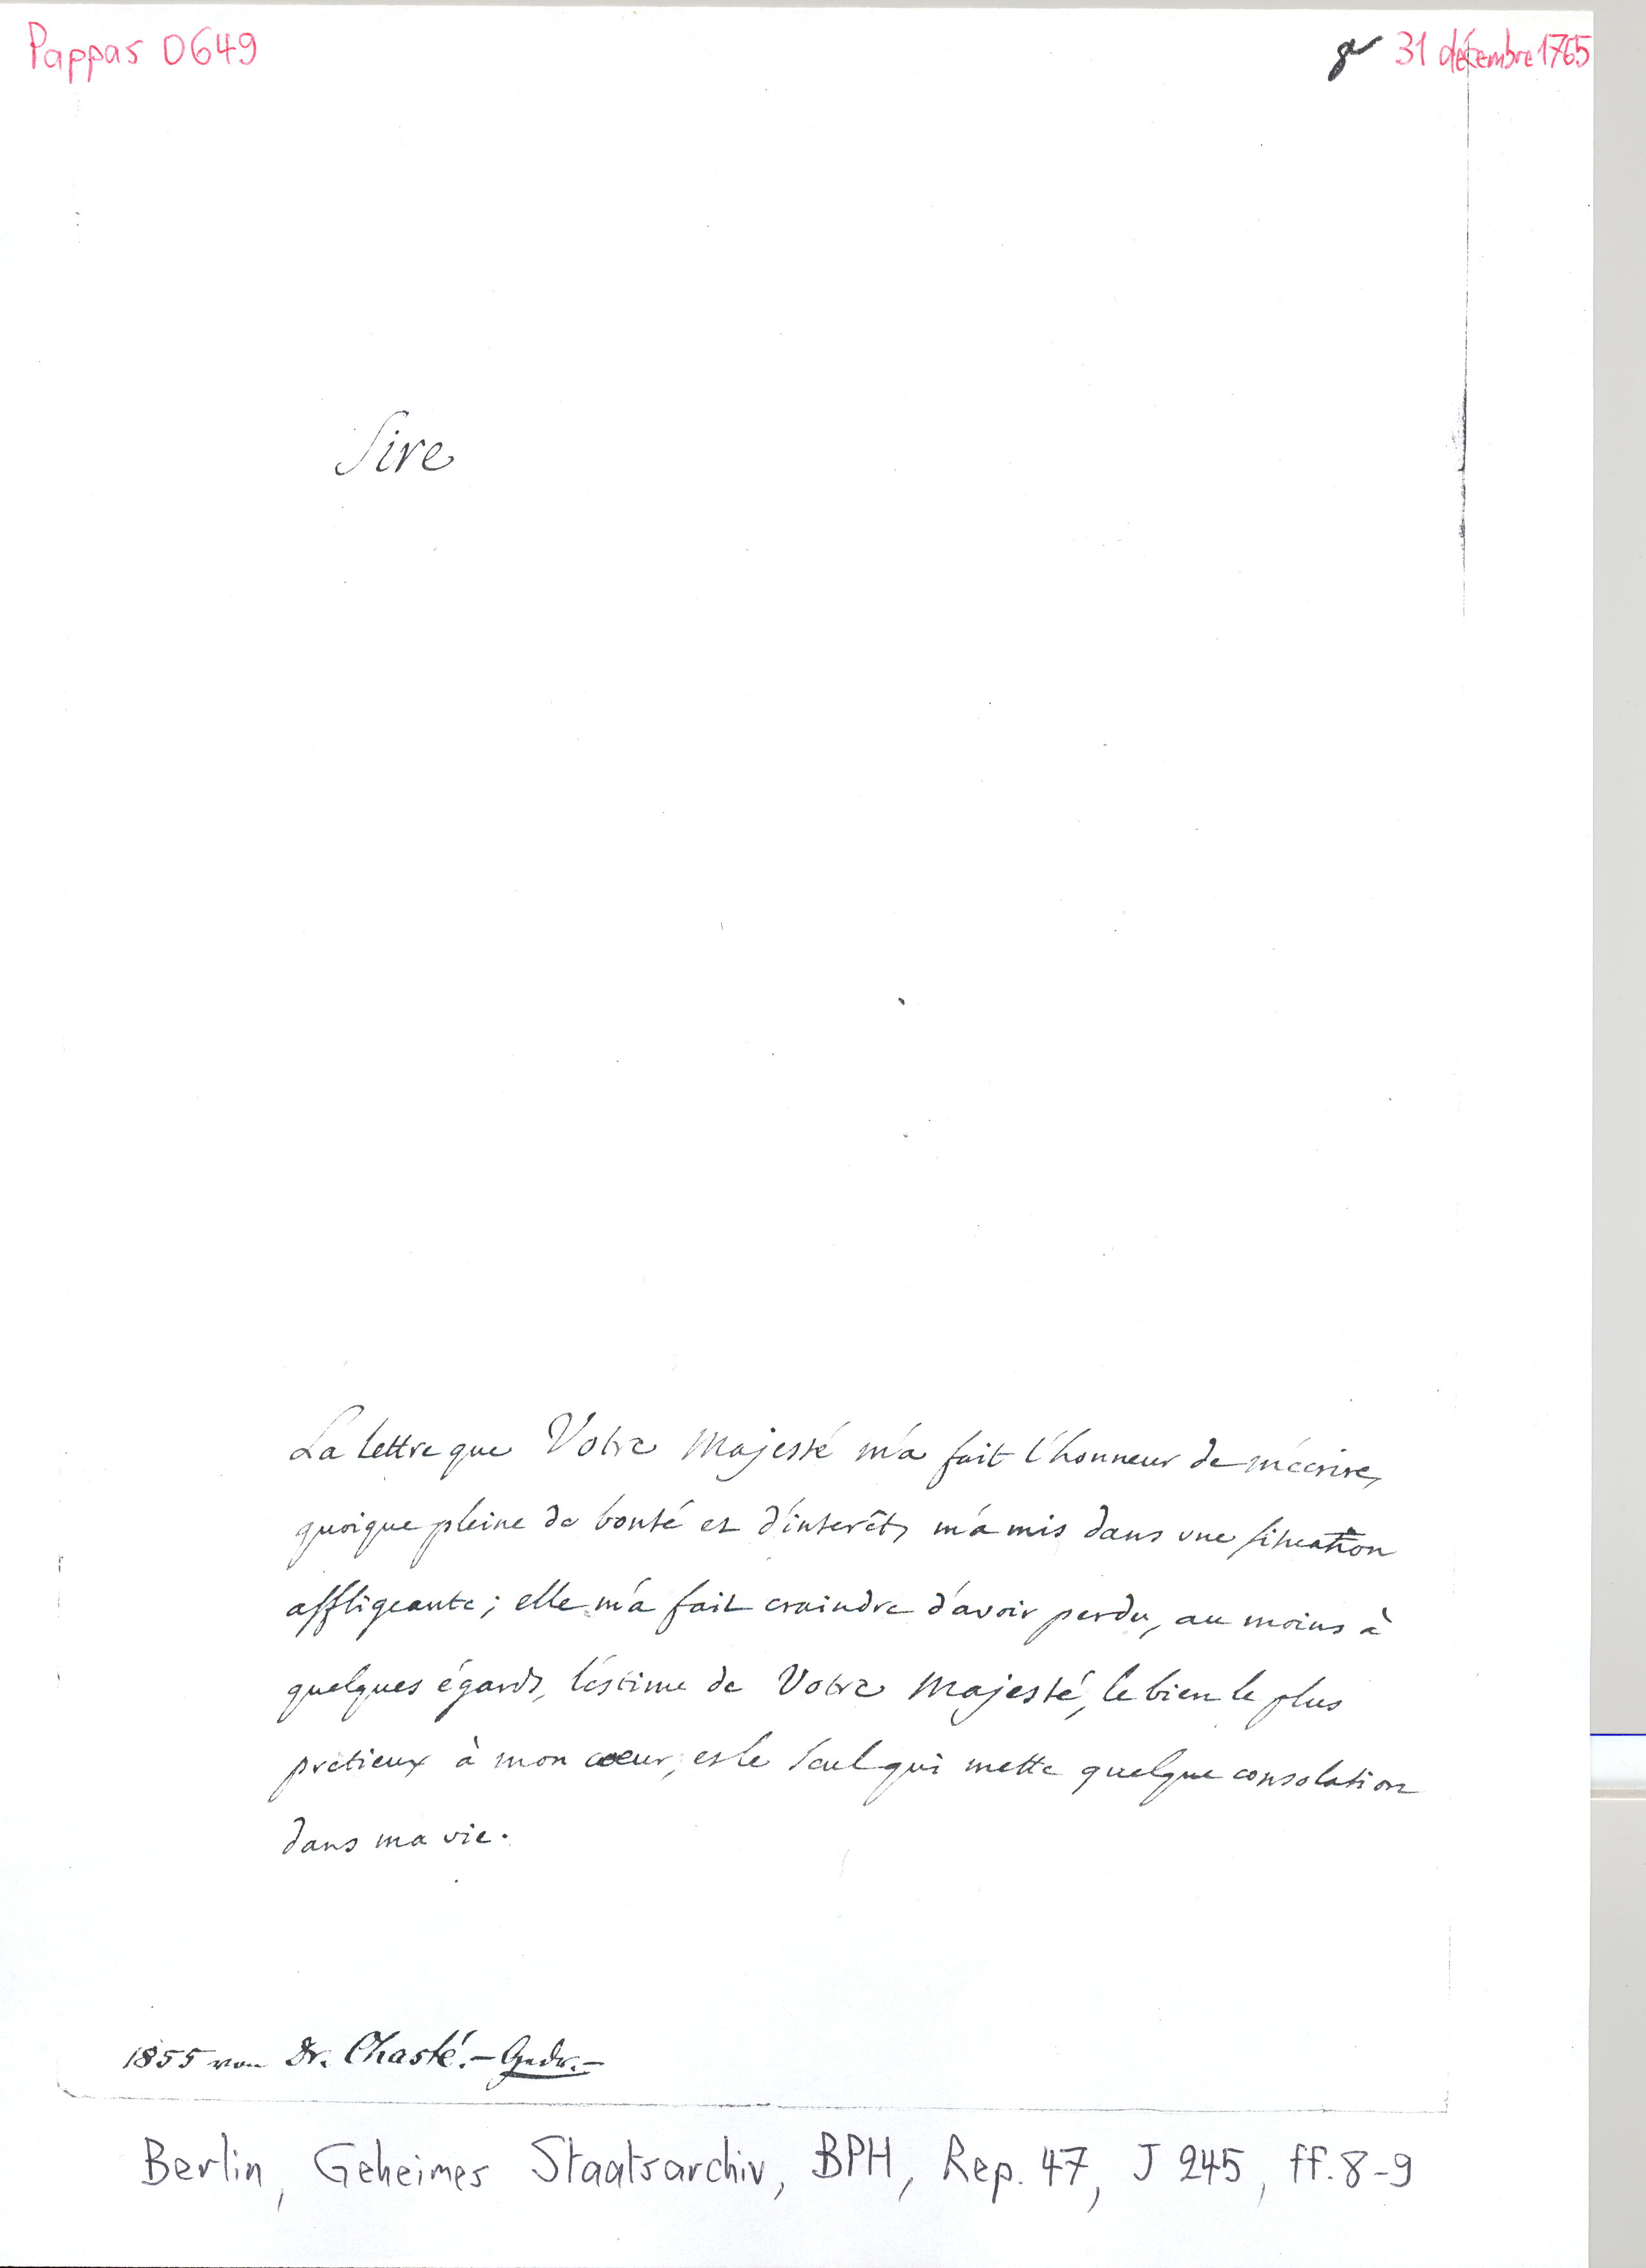 Pappas 0649
31 décembre 1765
Sire
La lettre que Votre Majesté m'a fait l'honneur de m'écrire,
quoique pleine de bonté et d'interêt, m'a mis dans une situation
affligeante; elle m'a fait craindre d'avoir perdu, au moins à
quelques égards, l'estime de Votre Majesté, le bien le plus
pretieux à mon cœur, et le seul qui mette quelque consolation
dans ma vie.
1855 von Dr. Chasté.- Gedr.-
Berlin, Geheimes Staatsarchiv, BPH, Rep. 47, J 245, ff. 8-9